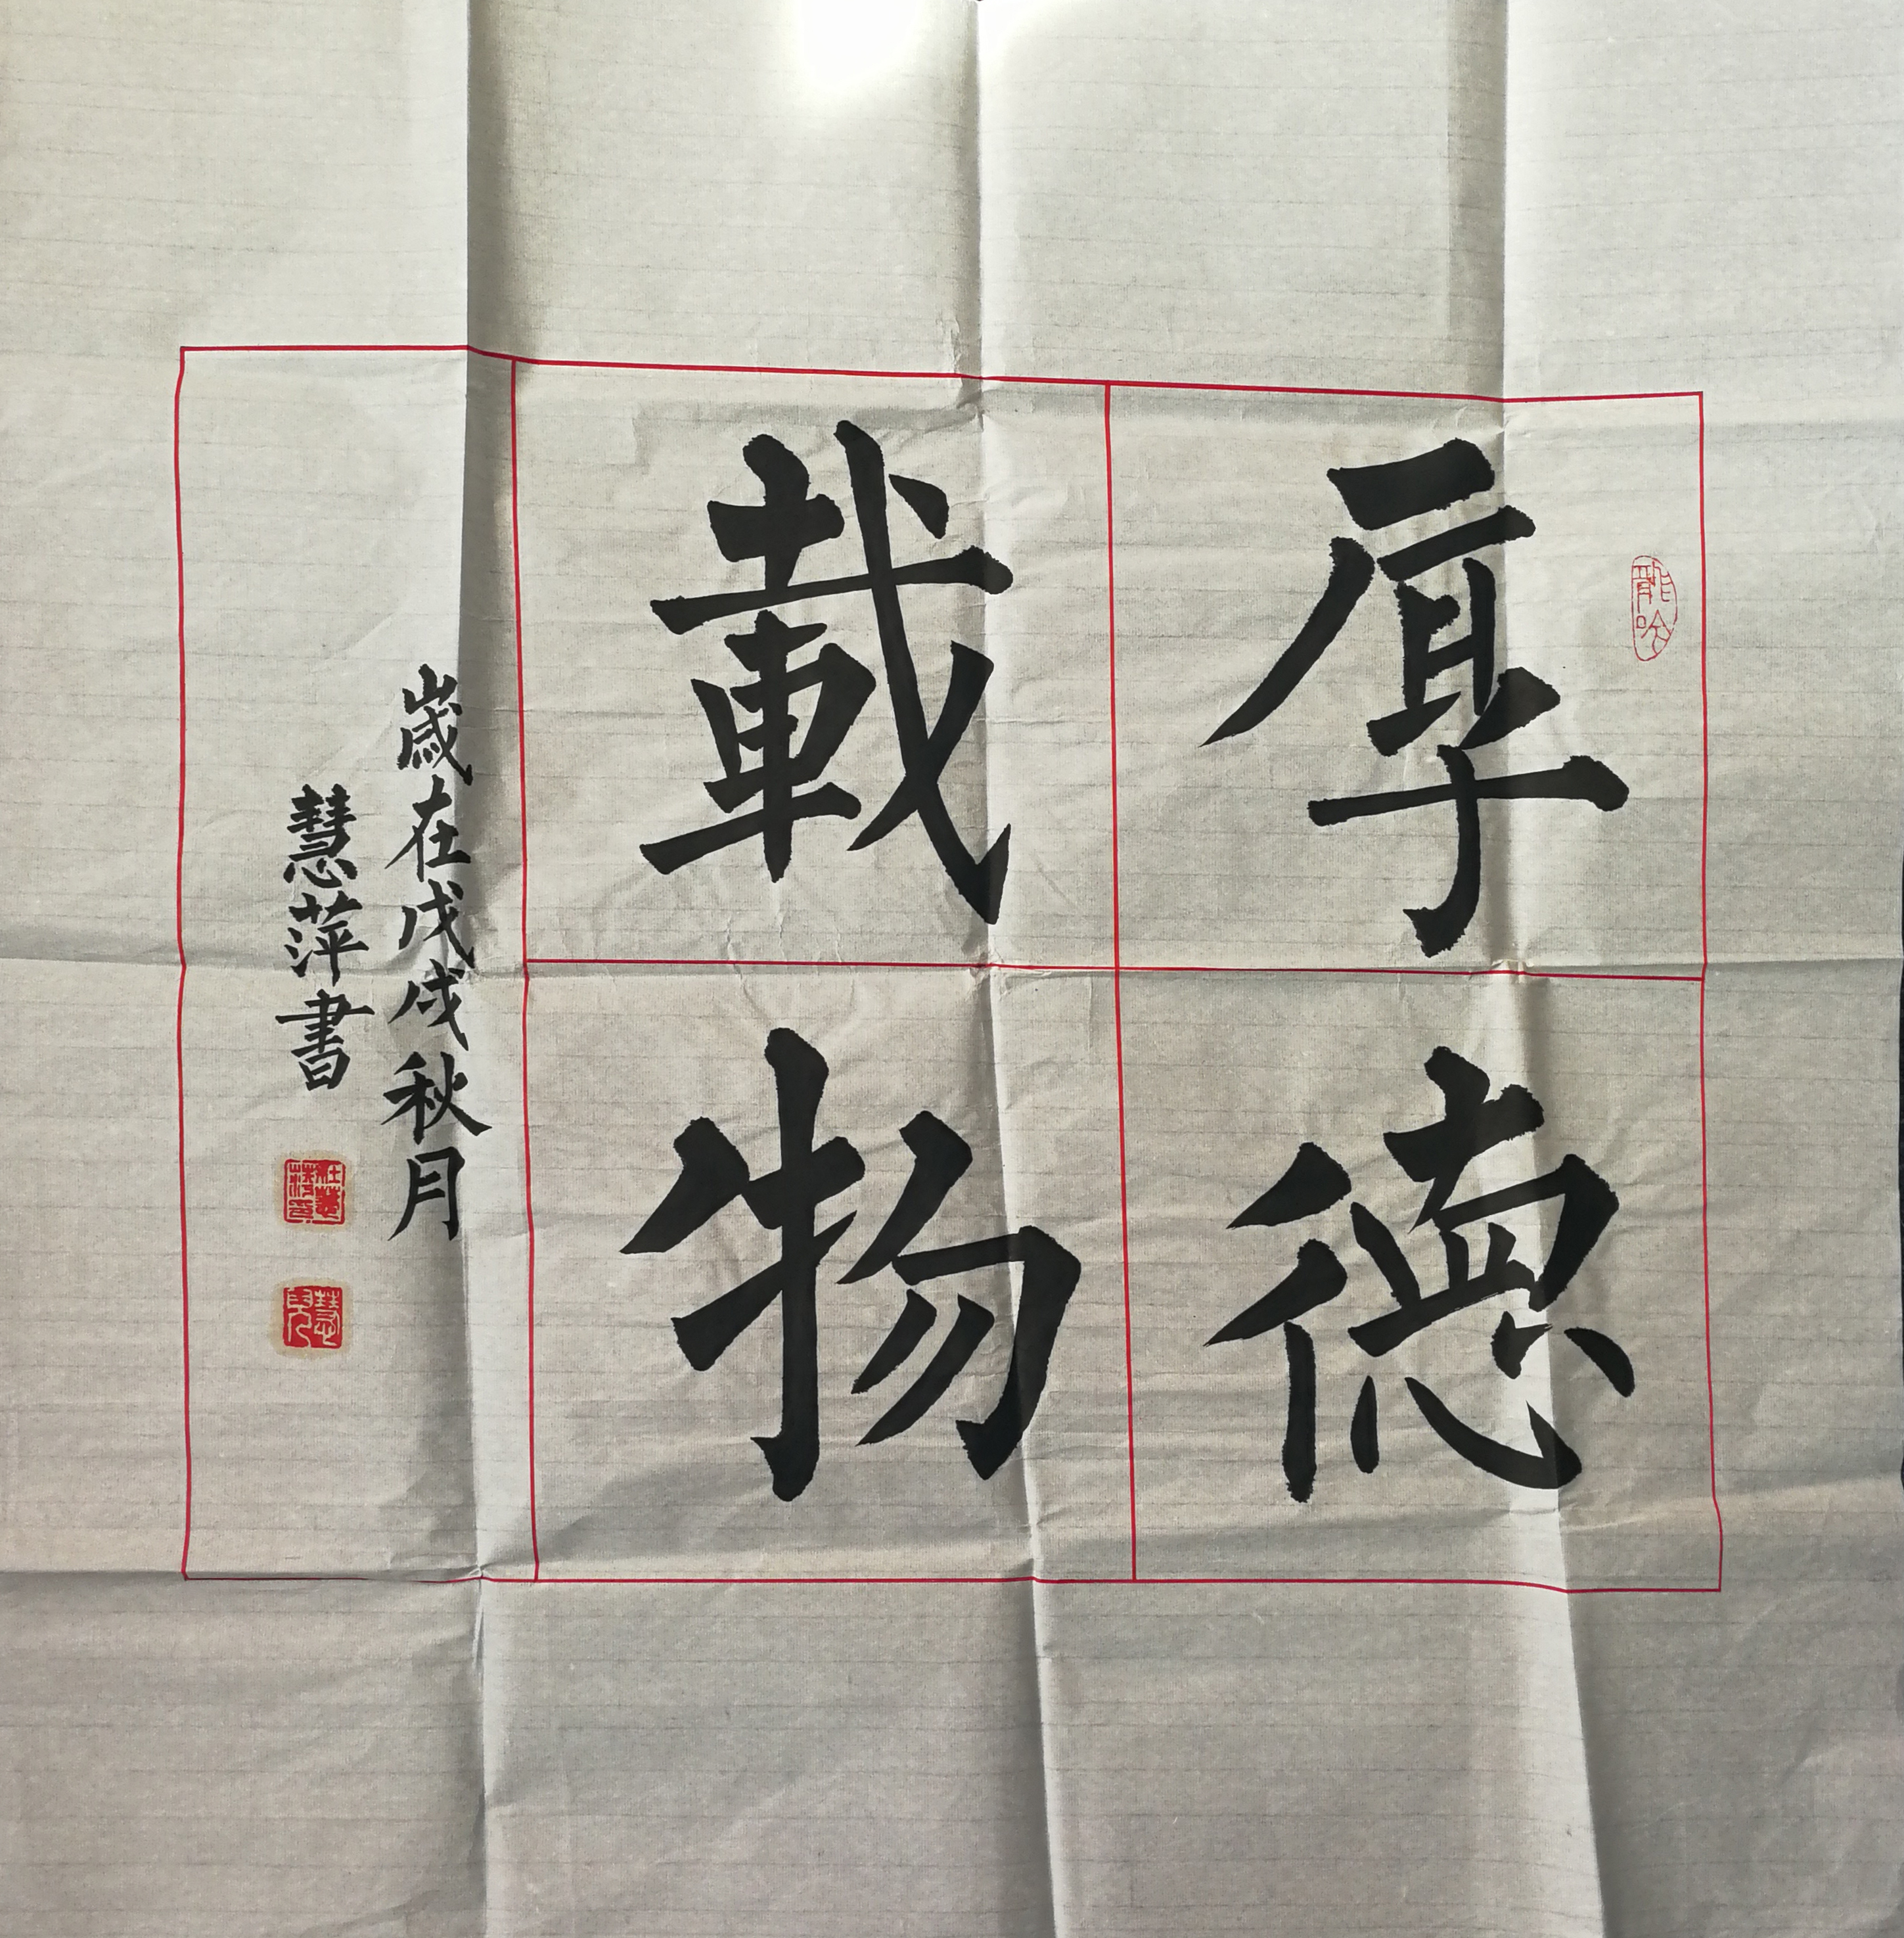 厚德
載物
歲在戊戌秋月
慧萍書